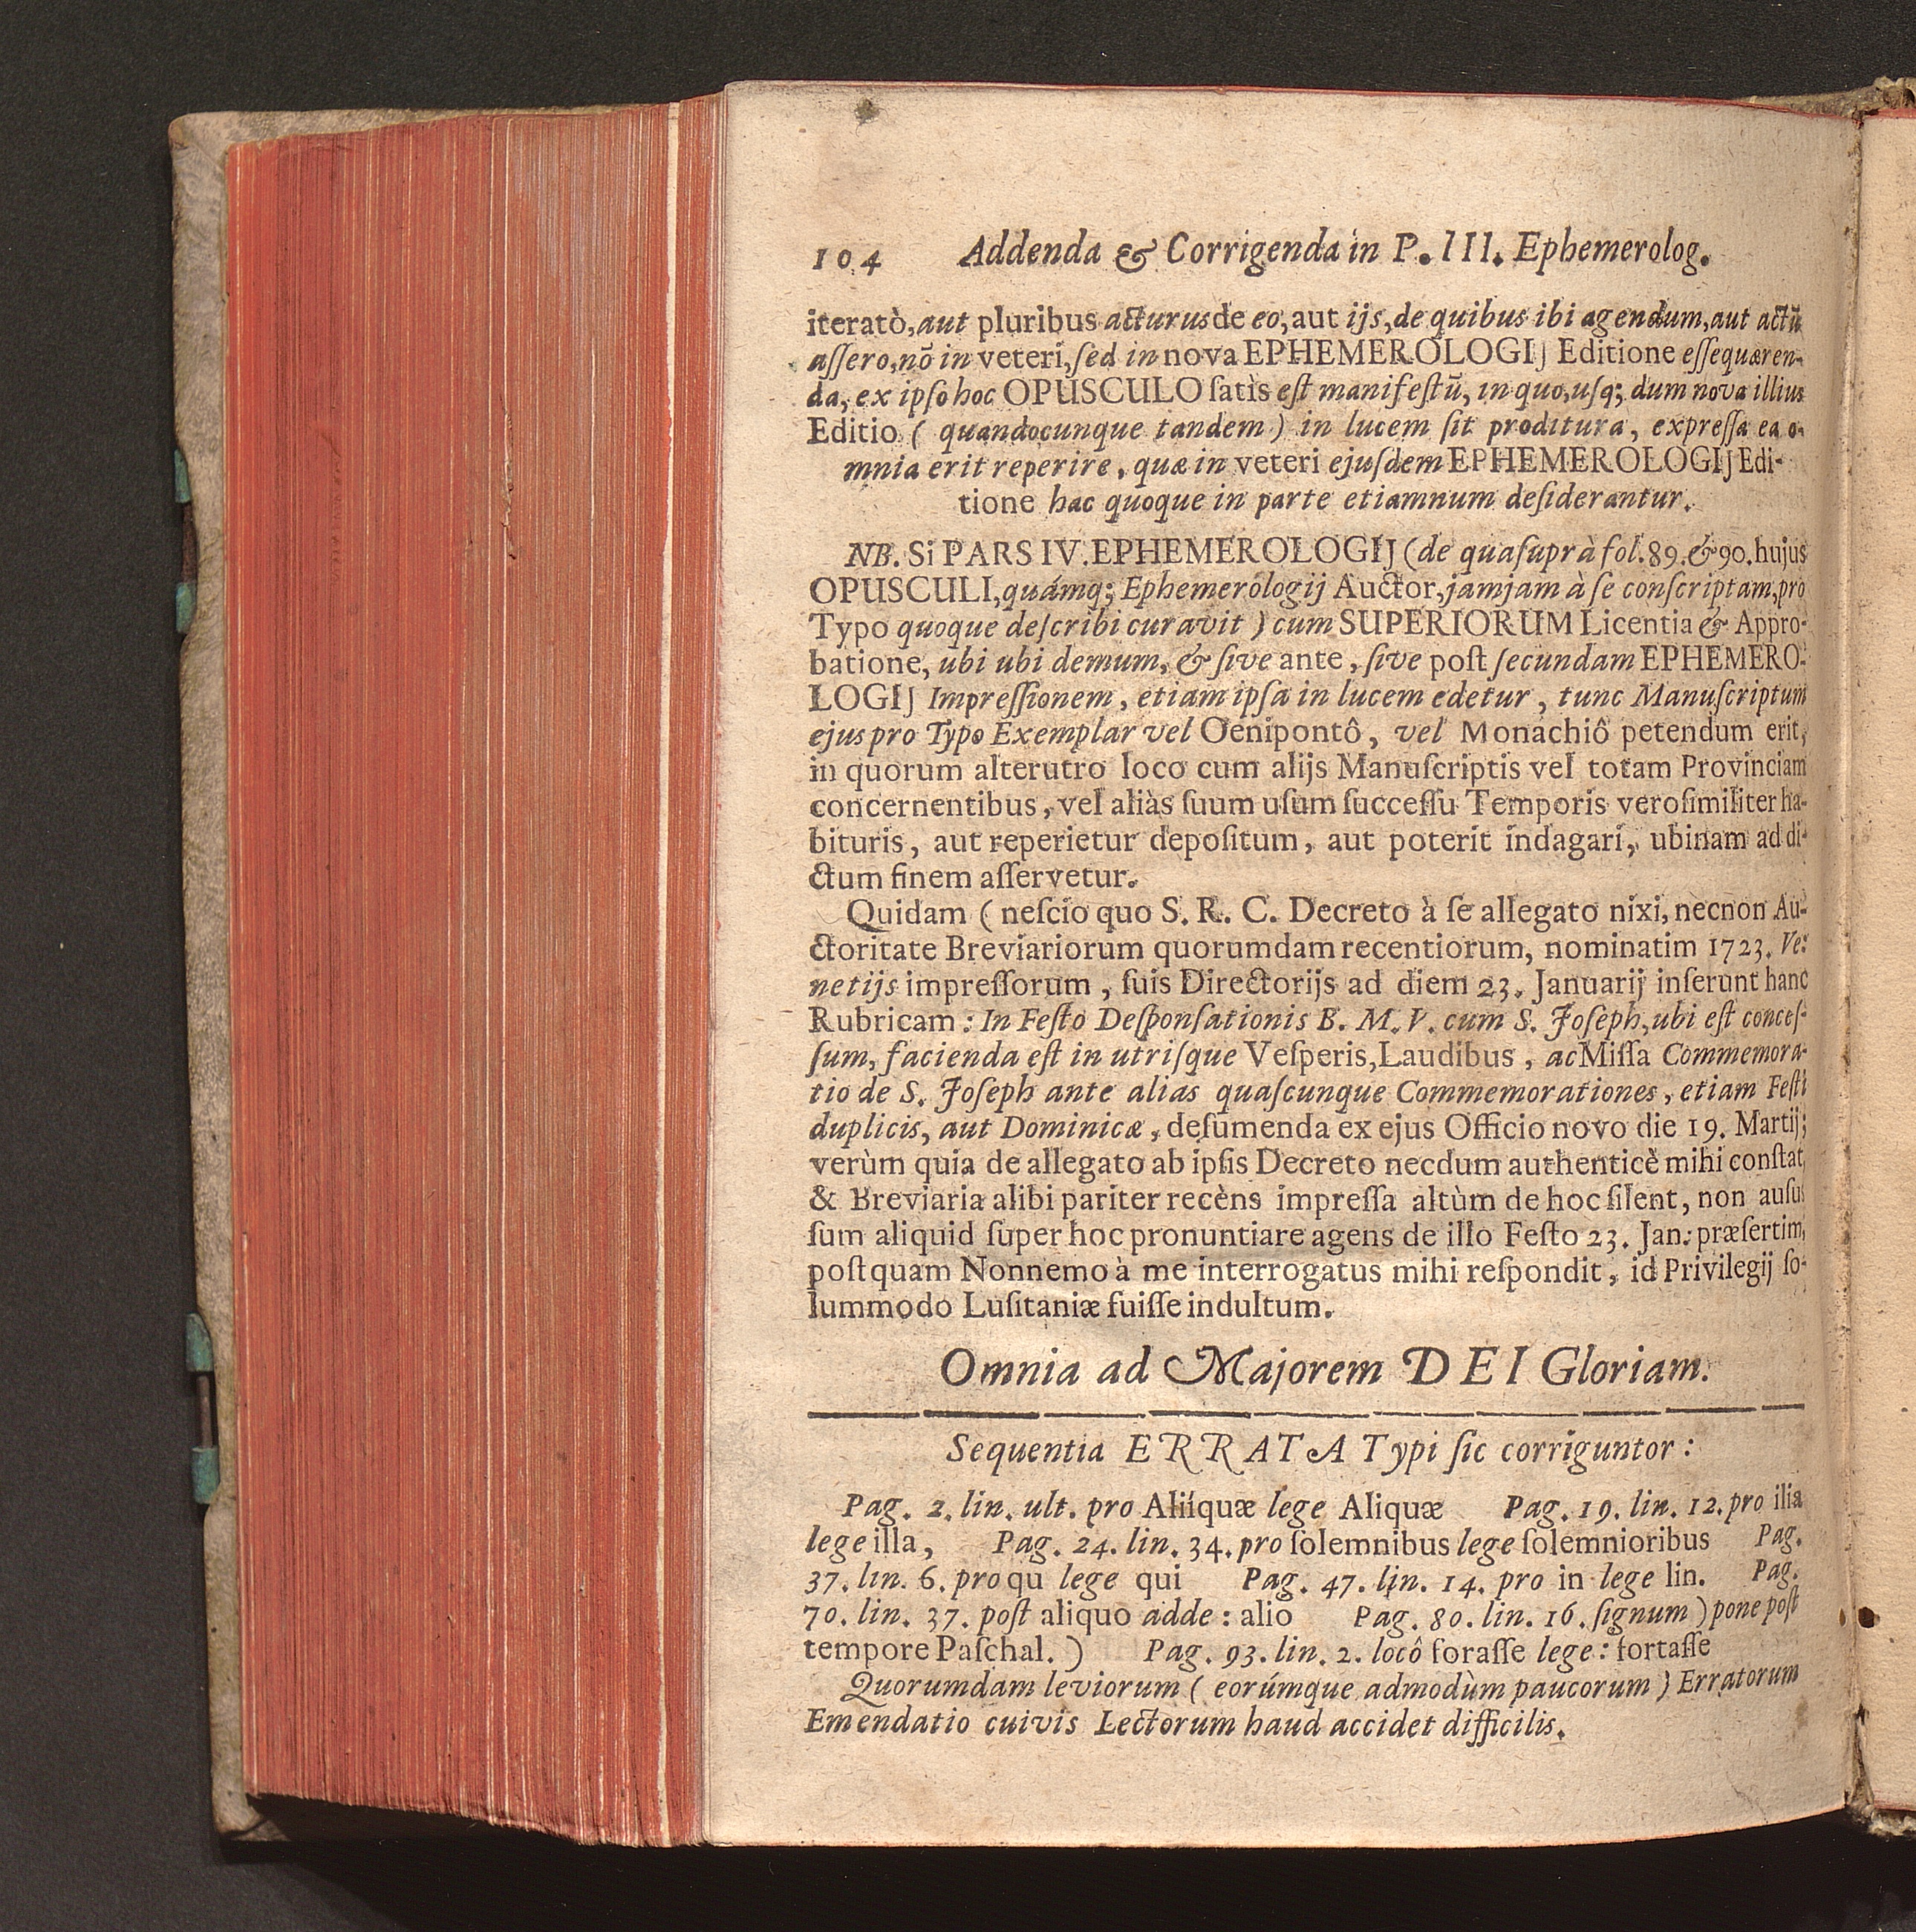 104 Addenda & Corrigenda in P. III. Ephemerolog.
iteratò, aut pluribus acturus de eo, aut ijs, de quibus ibi agendum, aut actũ
aſſero, nõ in veteri, ſed in nova EPHEMEROLOGIJ Editione eſſe quæren-
da, ex ipſo hoc OPUSCULO ſatìs eſt manifeſtũ, in quo, uſq; dum nova illius
Editio ( quandocunque tandem ) in lucem ſit proditura, expreſſa ea o-
mnia erit reperire, quæ in veteri ejuſdem EPHEMEROLOGIJ Edi-
tione hac quoque in parte etiamnum deſiderantur.
NB. Si PARS IV. EPHEMEROLOGIJ (de qua ſuprà fol. 89. & 90. hujus
OPUSCULI, quámq; Ephemerólogij Auctor, jamjam à ſe conſcriptam, pro
Typo quoque deſcribi curavit ) cum SUPERIORUM Licentia & Appro-
batione, ubi ubi demum, & ſive ante, ſive poſt ſecundam EPHEMERO-
LOGIJ Impreſſionem, etiam ipſa in lucem edetur, tunc Manuſcriptum
ejus pro Typo Exemplar vel Oenipontô, vel Monachiô petendum erit,
in quorum alterutro loco cum alijs Manuſcriptis vel totam Provinciam
concernentibus, vel aliàs ſuum uſum ſucceſſu Temporis veroſimiliter ha-
bituris, aut reperietur depoſitum, aut poterit indagari, ubinam ad di-
ctum finem aſſervetur.
Quidam ( neſcio quo S. R. C. Decreto à ſe allegato nixi, necnon Au-
ctoritate Breviariorum quorumdam recentiorum, nominatim 1723. Ve-
netijs impreſſorum, ſuis Directorijs ad diem 23. Januarij inſerunt hanc
Rubricam: In Feſto Deſponſationis B. M. V. cum S. Joſeph, ubi eſt conceſ-
ſum, facienda eſt in utriſque Veſperis, Laudibus, ac Miſſa Commemora-
tio de S. Joſeph ante alias quaſcunque Commemorationes, etiam Feſti
duplicis, aut Dominicæ, deſumenda ex ejus Officio novo die 19. Martij;
verùm quia de allegato ab ipſis Decreto necdum authenticè mihi conſtat,
& Breviaria alibi pariter recèns impreſſa altùm de hoc ſilent, non auſus
ſum aliquid ſuper hoc pronuntiare agens de illo Feſto 23. Jan: præſertim,
poſtquam Nonnemo à me interrogatus mihi reſpondit, id Privilegij ſo-
lummodo Luſitaniæ fuiſſe indultum.
Omnia ad Majorem DEI Gloriam.
Sequentia ERRATA Typi ſic corriguntor:
Pag. 2. lin. ult. pro Aliíquæ lege Aliquæ Pag. 19. lin. 12. pro ilia
lege illa, Pag. 24. lin. 34. pro ſolemnibus lege ſolemnioribus Pag.
37. lin. 6. pro qu lege qui Pag. 47. lin. 14. pro in lege lin. Pag.
70. lin. 37. poſt aliquo adde: alio Pag. 80. lin. 16. ſignum ) pone poſt
tempore Paſchal. ) Pag. 93. lin. 2. locô foraſſe lege: fortaſſe
Quorumdam leviorum ( eorúmque admodùm paucorum ) Erratorum
Emendatio cuivis Lectorum haud accidet difficilis.